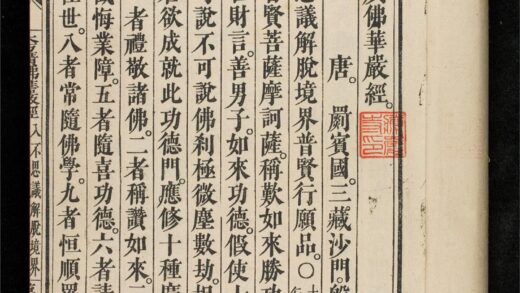 佛華嚴經。
唐。罽賓國。三藏沙門。般
思議解脫境界普賢行願品。〇
普賢菩薩摩訶薩。稱歎如來勝功
財言。善男子。如來功德。假使十
可說不可說佛刹極微塵數劫。相
欲成就此功德門。應修十種廣
者禮敬諸佛。二者稱讚如來。三
懺悔業障。五者隨喜功德。六者請
住世。八者常隨佛學。九者恒順眾
入不思議解脫境界